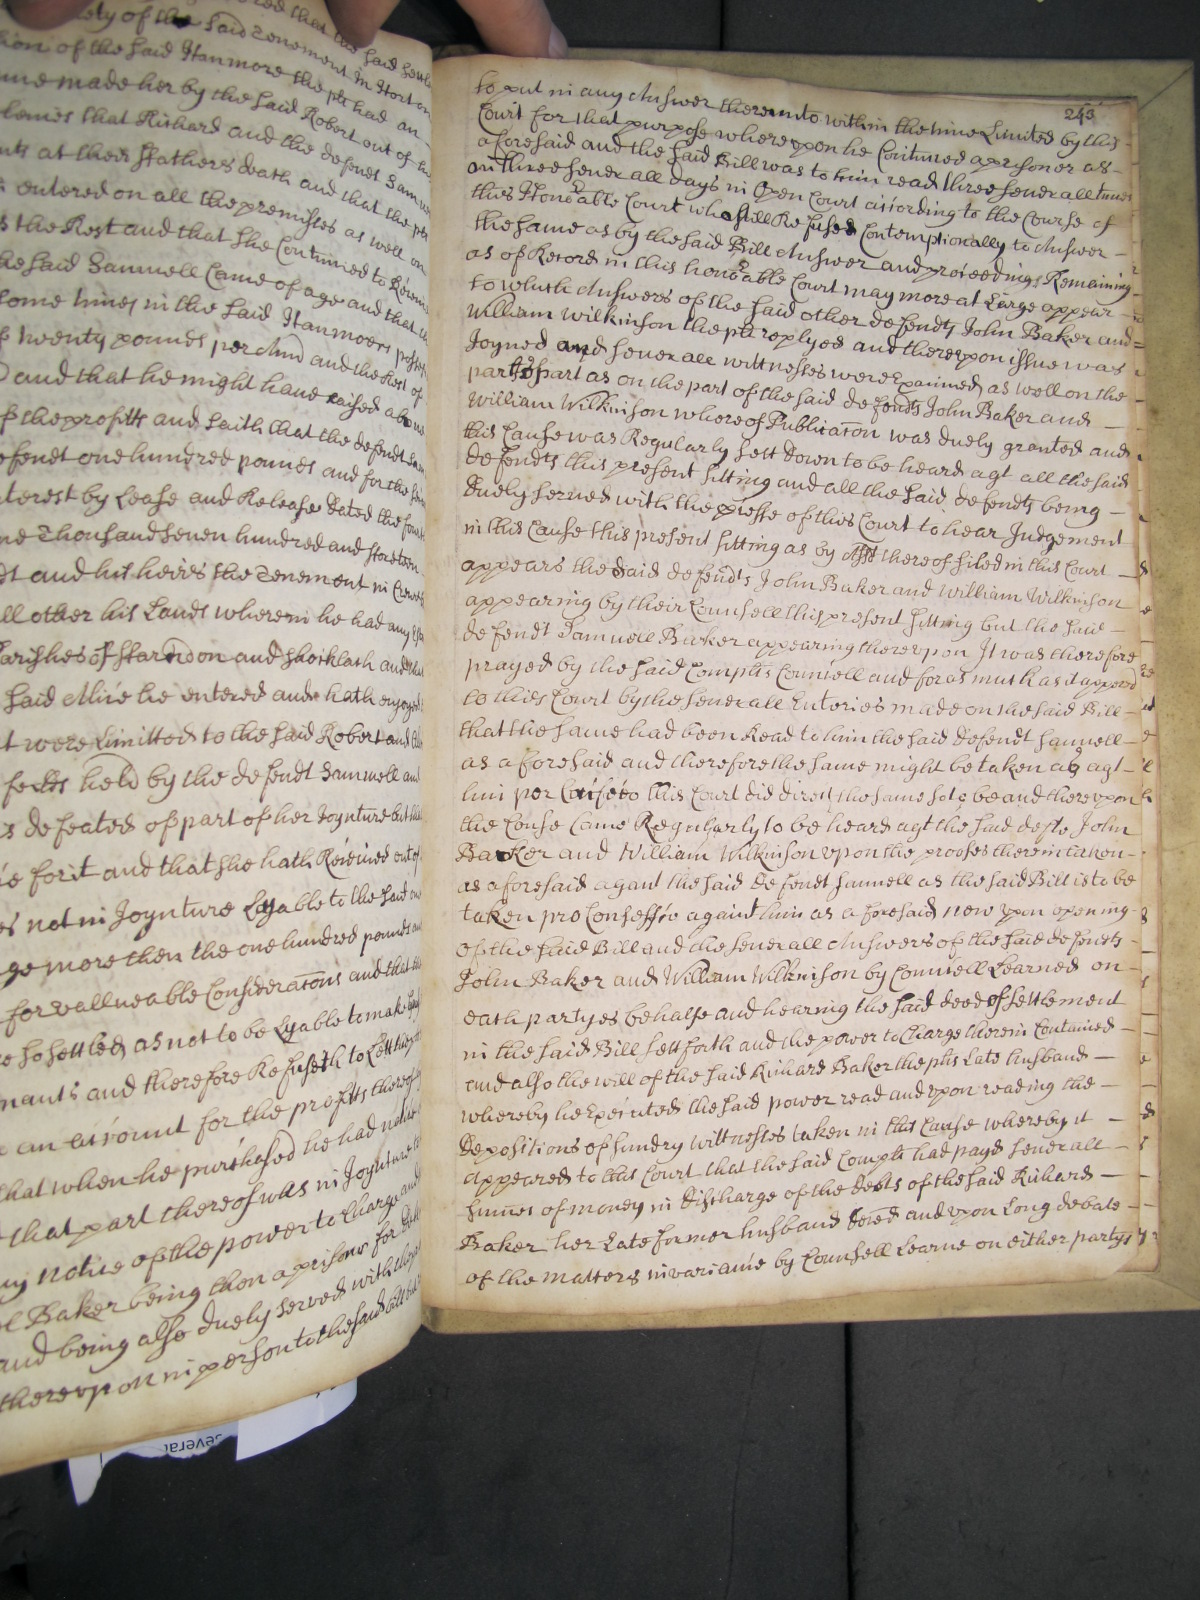 said
ety of the said Tenement in Horton
tion of the said Hanmore the plt had an
made her by the said Robert out of
that Richard and the defendt Sam
at their ffathers death and that the plt
entered on all the premisses as well on
the Rest and that she Continued to
he said Samuell Came of age and that
some times in the said Hanmoers
twenty pounds per Annu and the Rest of
and that he might have raised
the profitts and saith that the defendt
defendt one hundred pounds and for the
terest by Lease and Release dated the
ne Thousand seven hundred and
and his heires the Tenement in
ll other his Lands wherein he had any
Parishes of and Shocklach and
said he entered and hath enjoyed
were Limitted to the said Robert and
held by the defendt Samuell and
s defeated of part of her Joynture but
for it and that she hath Reiceived out of
es not in Joynture Lyable to the said
ge more then the one hundred pounds
for vallueable Consideracons and that
so settled as not to be Lyable to make
nants and therefore Refuseth to Lett the
an account for the profitts thereof
that when he purchased he had
that part thereof was in Joynture
ny notice of the power to Charge and
l Baker being then a prisoner for
and being also duely served with
thereupon in person to the said bill but
243
to put in any Answer thereunto within the time Limited by this
Court for that purpose whereupon he Continued a prisoner as
aforesaid and the said Bill was to him read three severall times
on three severall days in Open Court according to the Course of
this Honoble able Court who still Refused Contemptionally to Answer
the same as by the said Bill Answer and proceedings Remaining
as of Record in this honoble able Court may more at Large appear
to which Answers of the said other defendts John Baker and
William Wilkinson the plt replyed and thereupon issue was
Joyned and severall wittnesses were Examined as well on the
part as on the part of the said defendts John Baker and
William Wilkinson whereof Publicacon was duely granted and
this Cause was Regularly sett down to be heard agt all the said
defendts this present sitting and all the said defendts being
duely served with the processe of this Court to hear Judgement
in this Cause this present sitting as by Affdt thereof filed in this Court
appears the said defendts John Baker and William Wilkinson
appearing by their Counsell this present sitting but the said
defendt Samuell Baker appearing thereupon It was therefore
prayed by the said Complts Councell and for as much as it appeared
to this Court by the severall Entories made on the said Bill
that the same had been Read to him the said defendt Samuell
as aforesaid and therefore the same might be taken as agt
him per Confesso this Court did direct the same so to be and thereupon
the Cause Came Regularly to be heard agt the said defts John
Barker and William Wilkinson upon the proofes therein taken
as aforesaid against the said defendt Samuell as the said Bill is to be
taken pro Confesso against him as aforesaid now upon opening
of the said Bill and the severall Answers of the said defendts
John Baker and William Wilkinson by Councell Learned on
each partyes behalfe and hearing the said deed of settlement
in the said Bill sett forth and the power to Charge therein Contained
and also the will of the said Richard Baker the plts Late husband
whereby he Executed the said power read and upon reading the
Depositions of sundry wittnesses taken in this Cause whereby it
appeared to this Court that the said Complt had payd severall
summes of money in discharge of the debts of the said Richard
Baker her Late former husband deced and upon Long debate
of the matters in variance by Counsell Learne on either partys